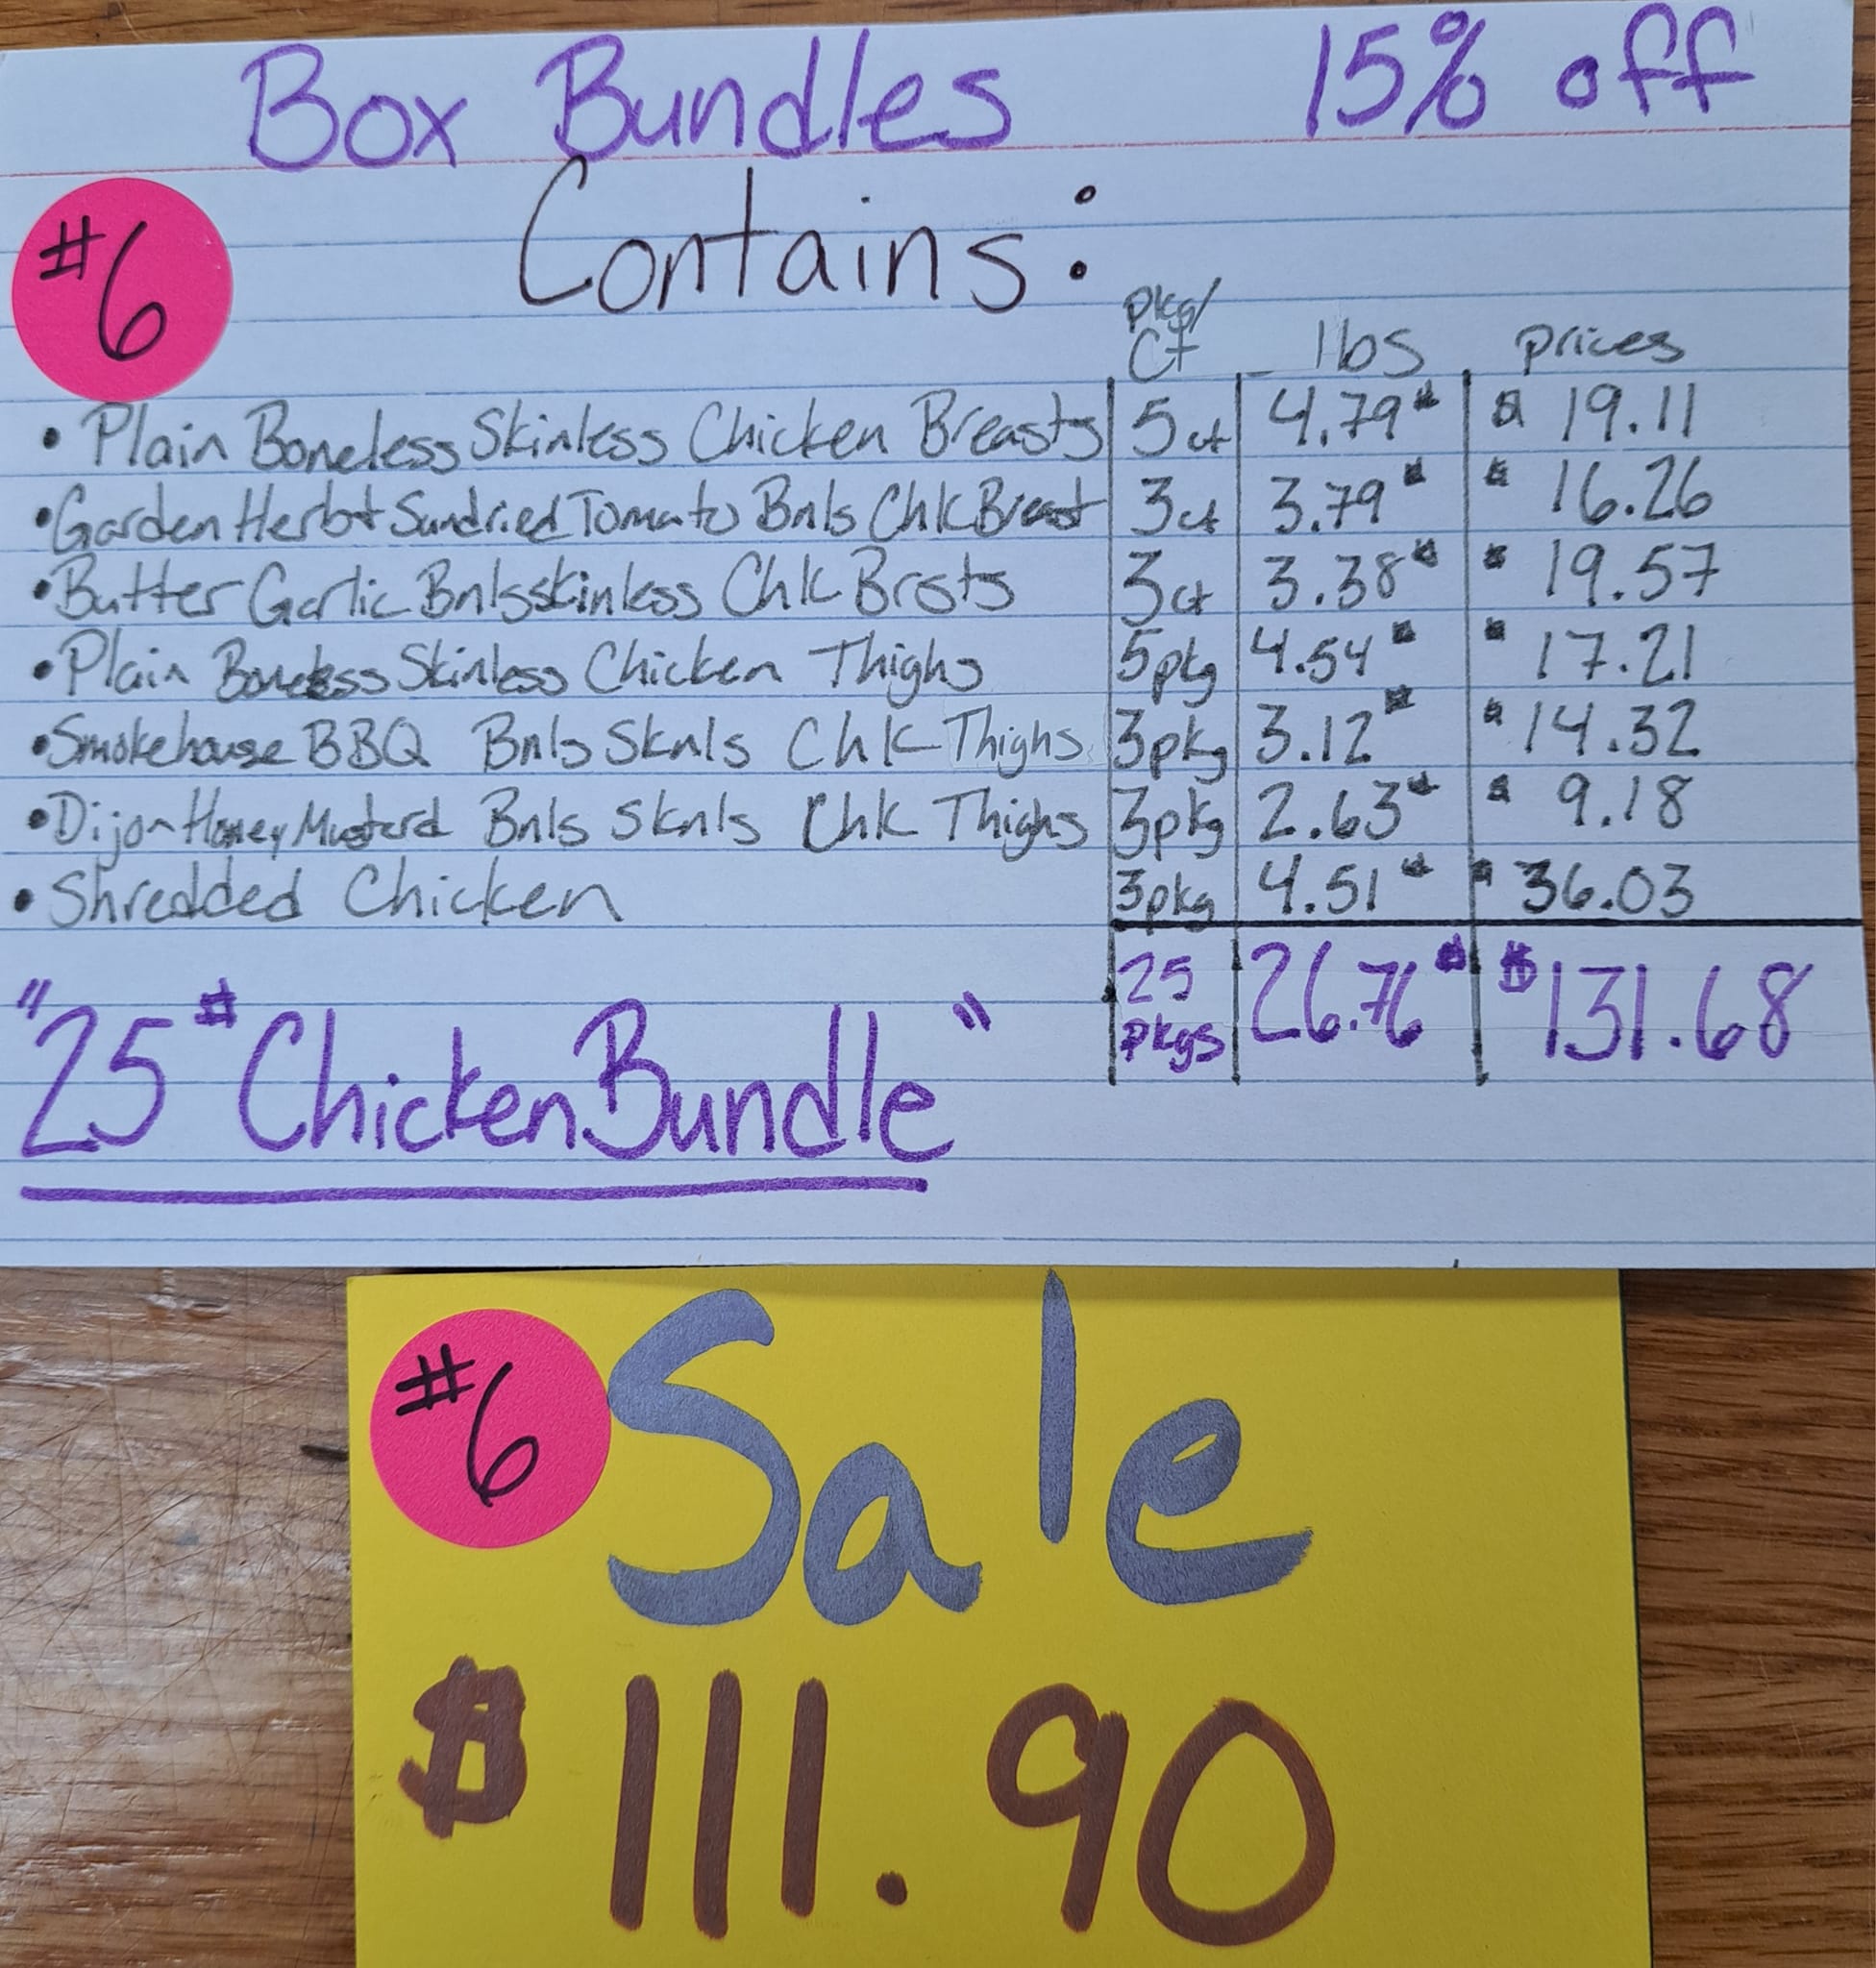 Box Bundles 15% off
#6
Contains:
pkg/
ct lbs prices
• Plain Boneless Skinless Chicken Breasts 5ct 4.79# $ 19.11
• Garden Herb + Sundried Tomato Bnls Chk Breast 3ct 3.79# $ 16.26
• Butter Garlic Bnls skinless Chk Brsts 3ct 3.38# $ 19.57
• Plain Boneless Skinless Chicken Thighs 5pkg 4.54# $ 17.21
• Smokehouse BBQ Bnls Sknls Chk Thighs 3pkg 3.12# $ 14.32
• Dijon Honey Mustard Bnls Sknls Chk Thighs 3pkg 2.63# $ 9.18
• Shredded Chicken 3pkg 4.51# $ 36.03
25 pkgs 26.76# $131.68
"25# Chicken Bundle"
#6
Sale
$111.90